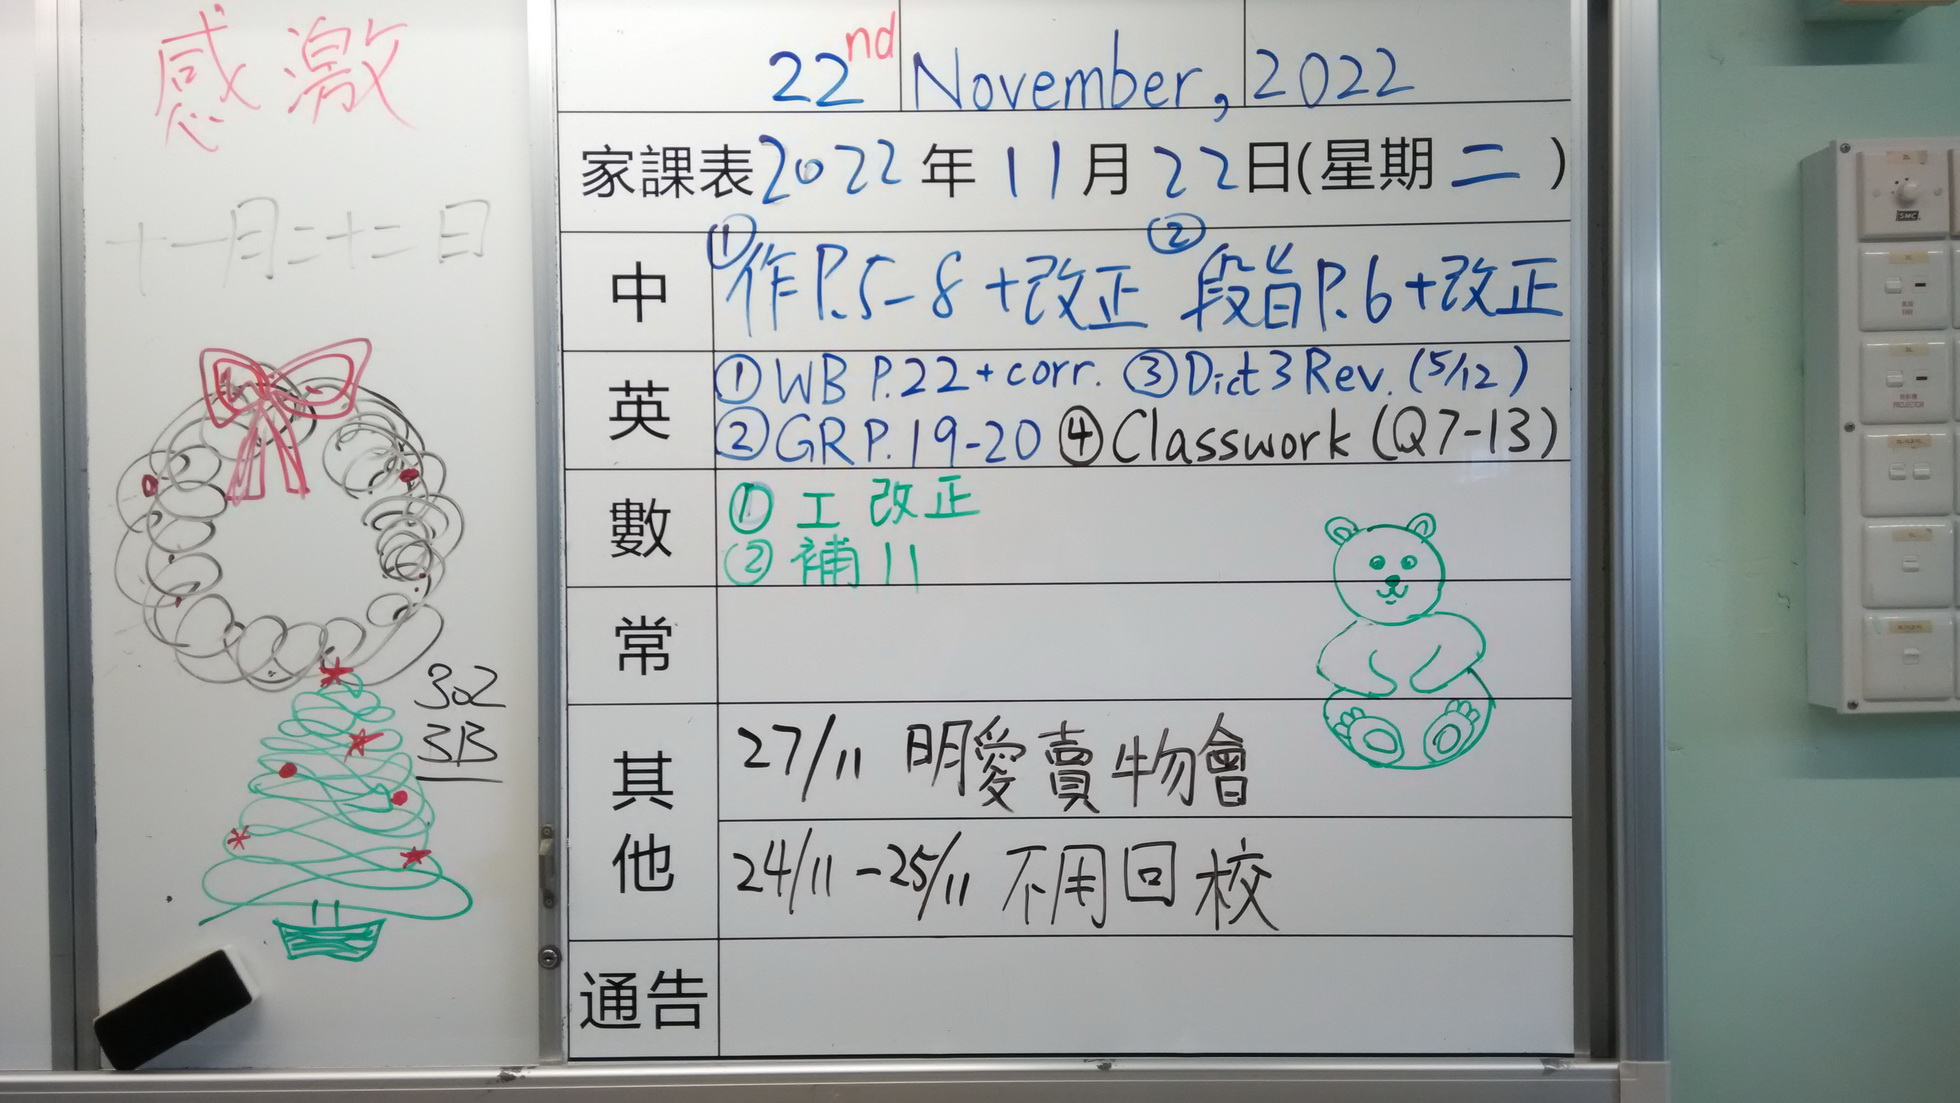 感激
十一月二十二日
302
3B
22nd November, 2022
家課表2022年11月22日(星期二)
中
①作P.5-8+改正 ②段旨P.6+改正
英
①WB P.22+corr. ③Dict 3 Rev. (5/12)
②GR P.19-20 ④Classwork (Q7-13)
數
①工 改正
②補11
常
其他
27/11 明愛賣物會
24/11-25/11 不用回校
通告
SMC
PROJECTOR